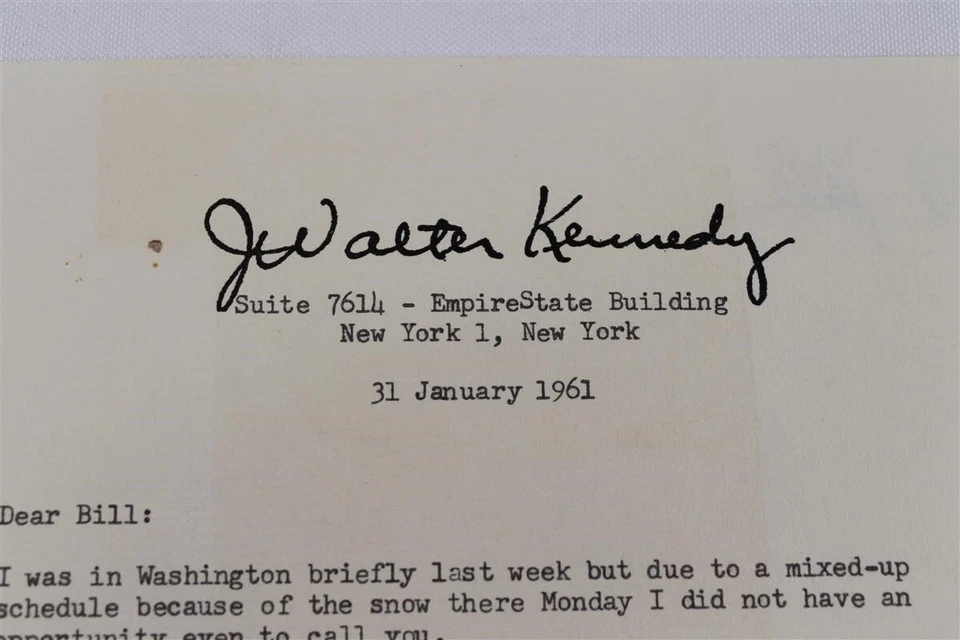 J Walter Kennedy
Suite 7614 - EmpireState Building
New York 1, New York
31 January 1961
Dear Bill:
I was in Washington briefly last week but due to a mixed-up
schedule because of the snow there Monday I did not have an
opportunity even to call you.